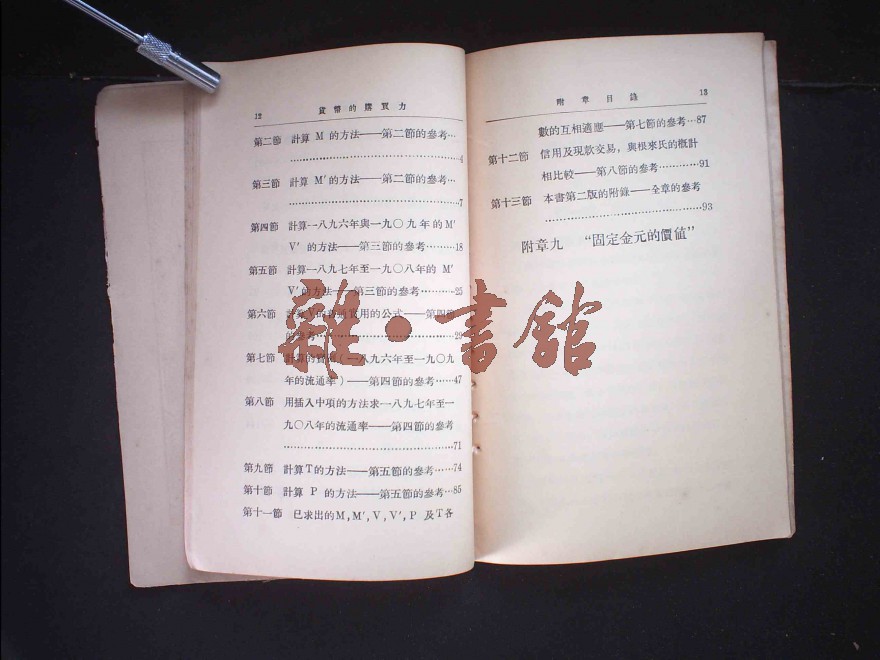 12 貨幣的購買力
第二節 計算 M 的方法——第二節的參考…
……………………………………4
第三節 計算 M′ 的方法——第二節的參考…
……………………………………7
第四節 計算一八九六年與一九〇九年的M′
V′ 的方法——第三節的參考………18
第五節 計算一八九七年至一九〇八年的 M′
V′的方法——第三節的參考………25
第六節 計算V的普通實用的公式——第四節
的參考……………………………29
第七節 計算的實例(一八九六年至一九〇九
年的流通率)——第四節的參考…47
第八節 用插入中項的方法求一八九七年至一
九〇八年的流通率——第四節的參考
……………………………………71
第九節 計算T的方法——第五節的參考…74
第十節 計算 P 的方法——第五節的參考…85
第十一節 已求出的M,M′,V,V′,P 及T各
附章目錄 13
數的互相適應——第七節的參考…87
第十二節 信用及現款交易,與根來氏的概計
相比較——第八節的參考…………91
第十三節 本書第二版的附錄——全章的參考
……………………………………93
附章九 “固定金元的價值”
雜·書館